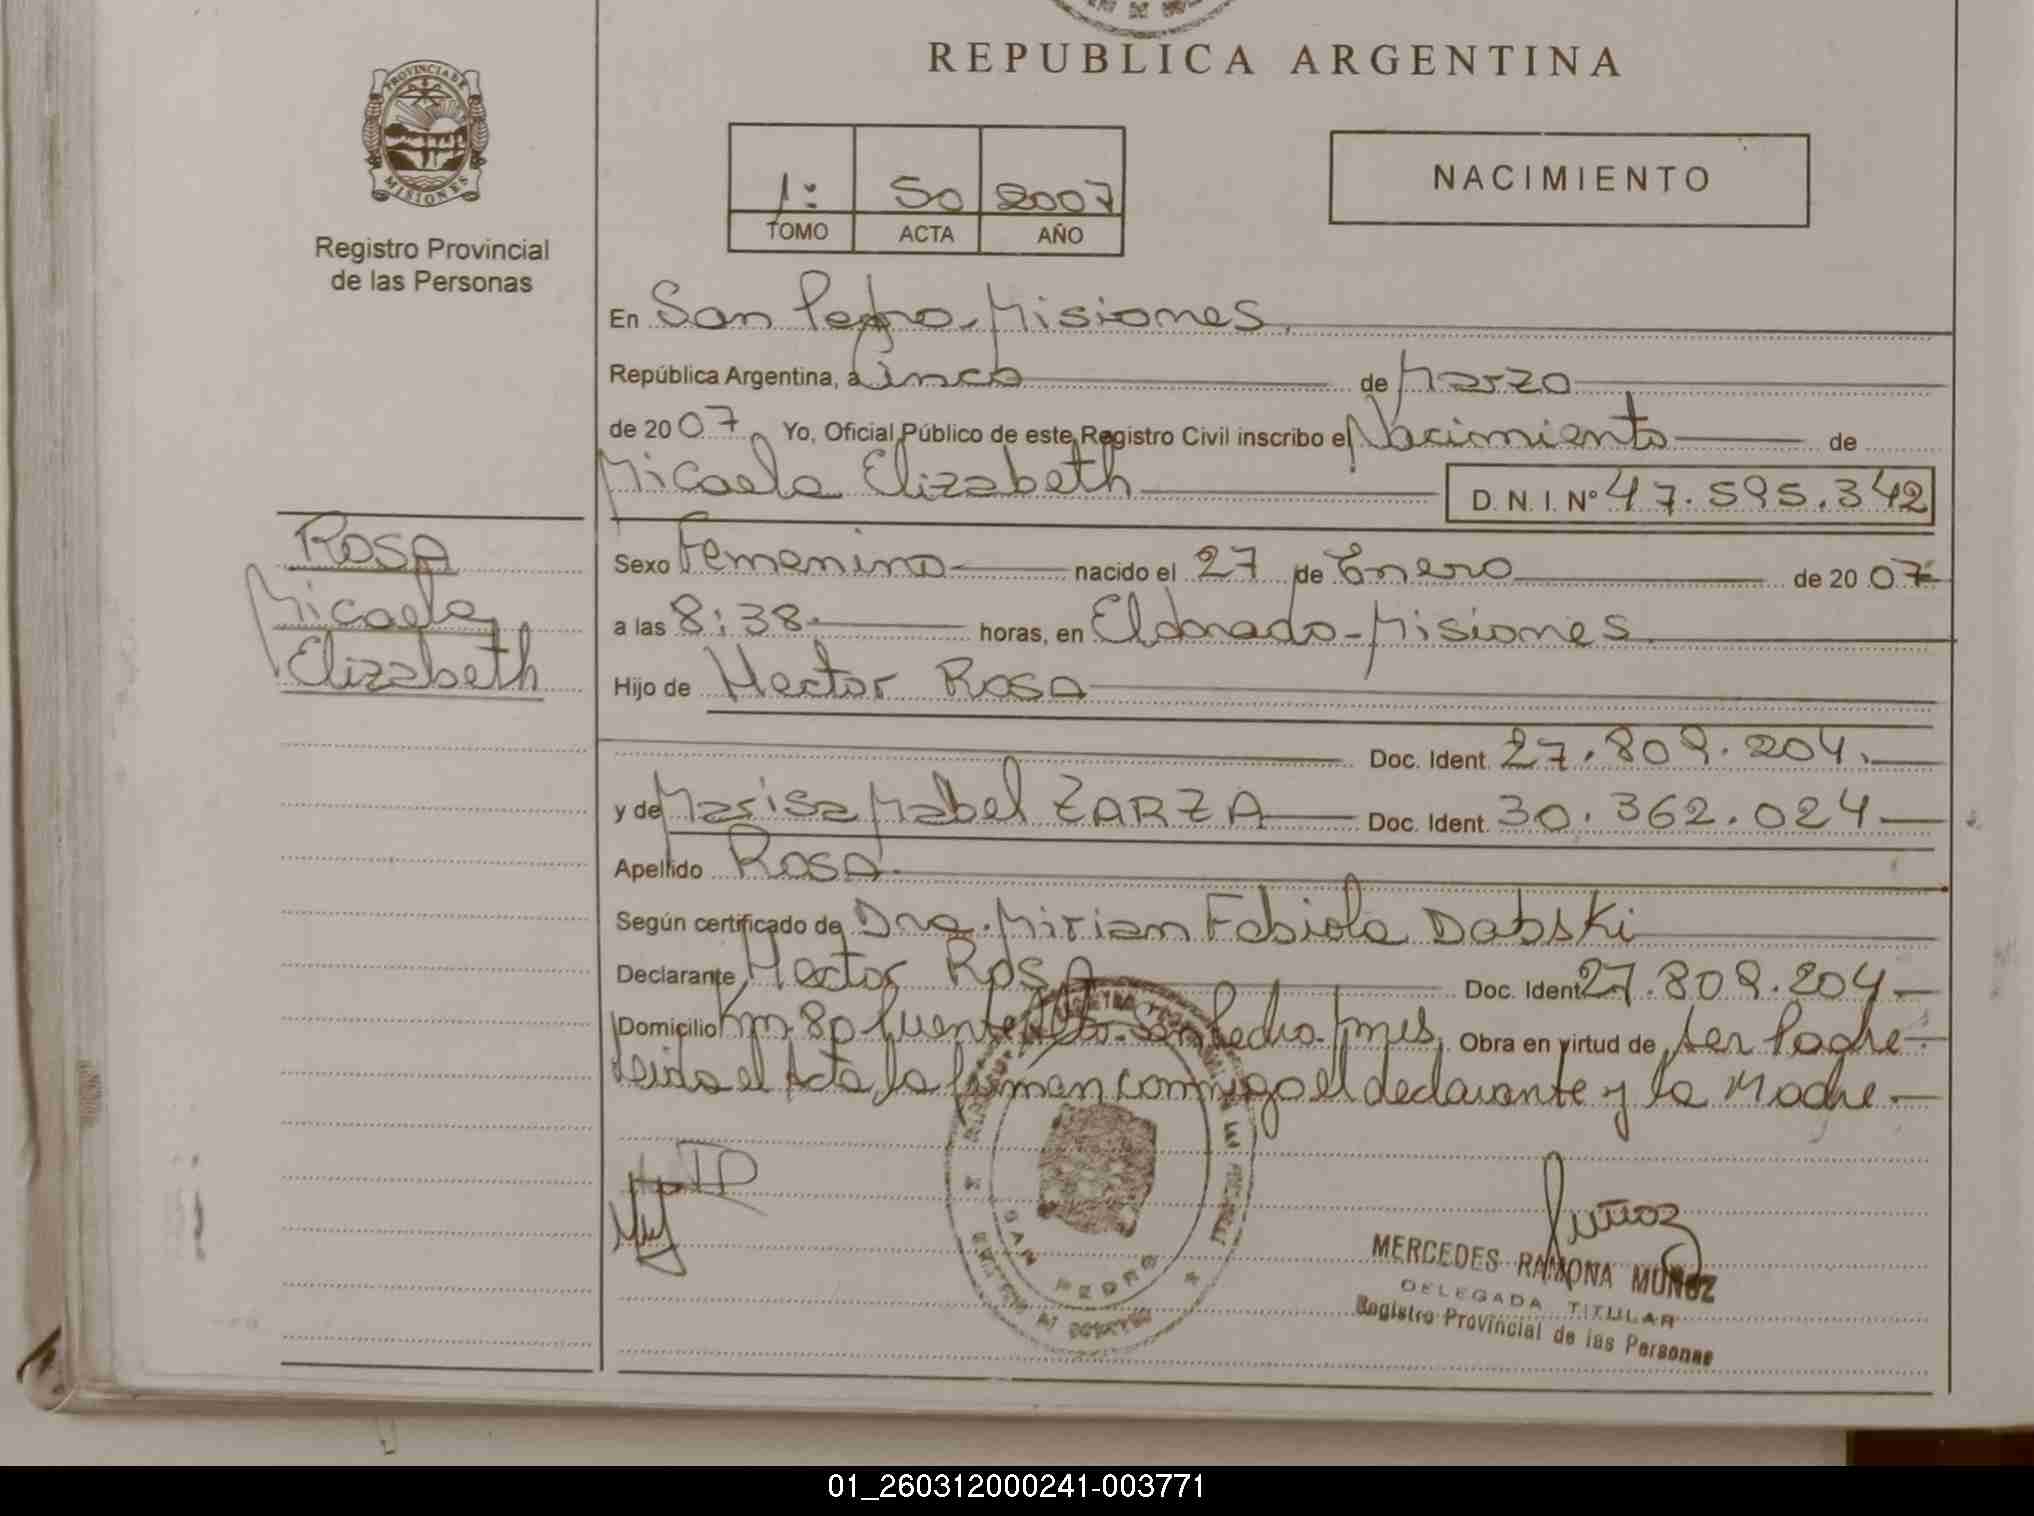 REPUBLICA ARGENTINA
PROVINCIA DE
MISIONES
Registro Provincial
de las Personas
1º 50 2007
TOMO ACTA AÑO
NACIMIENTO
En San Pedro-Misiones.
República Argentina, a Cinco de Marzo
de 2007 Yo, Oficial Público de este Registro Civil inscribo el Nacimiento de
Micaela Elizabeth D. N. I. Nº 47.595.342
ROSA
Micaela
Elizabeth
Sexo Femenino nacido el 27 de Enero de 2007
a las 8:38 horas, en Eldorado-Misiones
Hijo de Hector Rosa
Doc. Ident. 27.809.204.
y de Marisa Mabel ZARZA Doc. Ident. 30.362.024
Apellido Rosa
Según certificado de Dra. Mirian Fabiola Dabski
Declarante Hector Rosa Doc. Ident. 27.809.204
Domicilio Km 80 San Pedro. Mnes, Obra en virtud de ser Padre
Leida el Acta, la firman conmigo el declarante y la Madre
SAN PEDRO
Muñoz
MERCEDES RAMONA MUÑOZ
DELEGADA TITULAR
Registro Provincial de las Personas
01_260312000241-003771